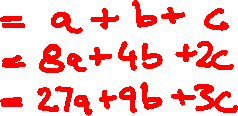 = a + b + c
= 8a+4b+2c
= 27a+9b+3c